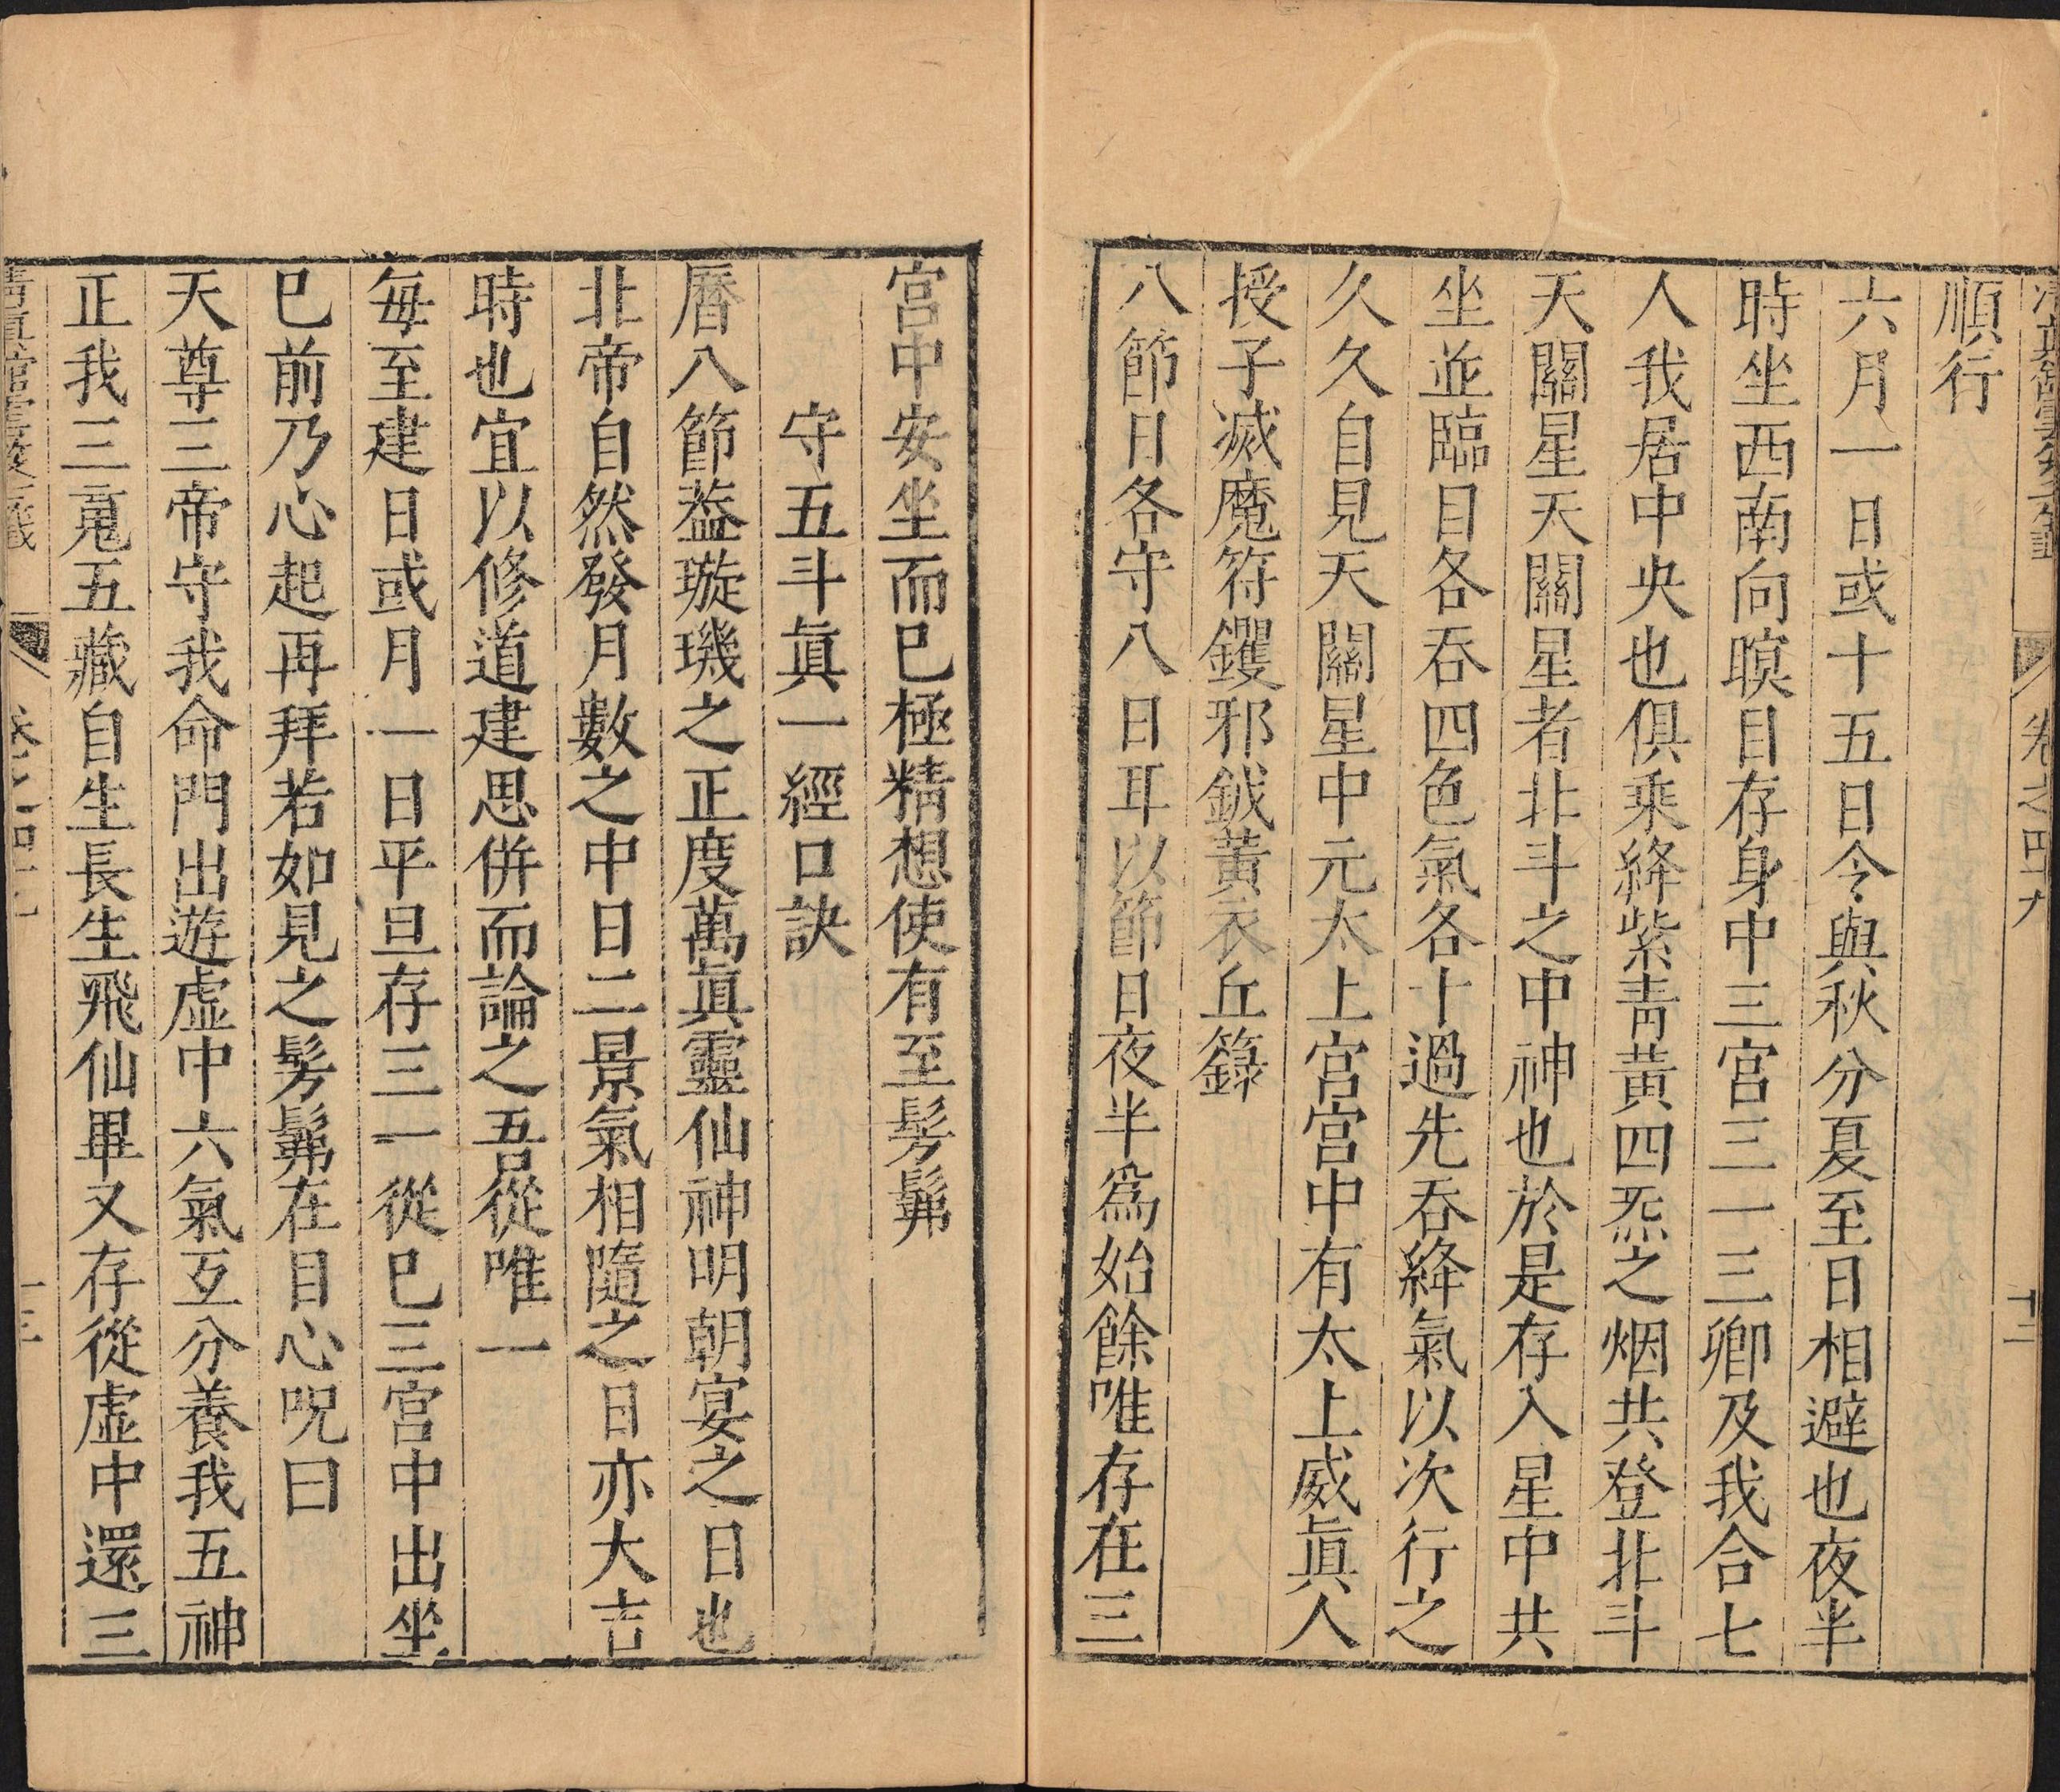 卷之四十九
十二
順行
六月一日或十五日今與秋分夏至日相避也夜半
時坐西南向暝目存身中三宮三一三卿及我合七
人我居中央也俱乘絳紫青黃四炁之烟共登北斗
天關星天關星者北斗之中神也於是存入星中共
坐並臨目各吞四色氣各十過先吞絳氣以次行之
久久自見天關星中元太上宮宮中有太上威眞人
授子滅魔符钁邪鉞黃衣丘籙
八節日各守八日耳以節日夜半爲始餘唯存在三
宮中安坐而已極精想使有至髣髴
守五斗眞一經口訣
曆八節葢璇璣之正度萬眞靈仙神明朝宴之日也
北帝自然發月數之中日二景氣相隨之日亦大吉
時也宜以修道建思併而論之吾從唯一
每至建日或月一日平旦存三一從巳三宮中出坐
巳前乃心起再拜若如見之髣髴在目心呪曰
天尊三帝守我命門出遊虛中六氣互分養我五神
正我三䰟五藏自生長生飛仙畢又存從虛中還三
十三